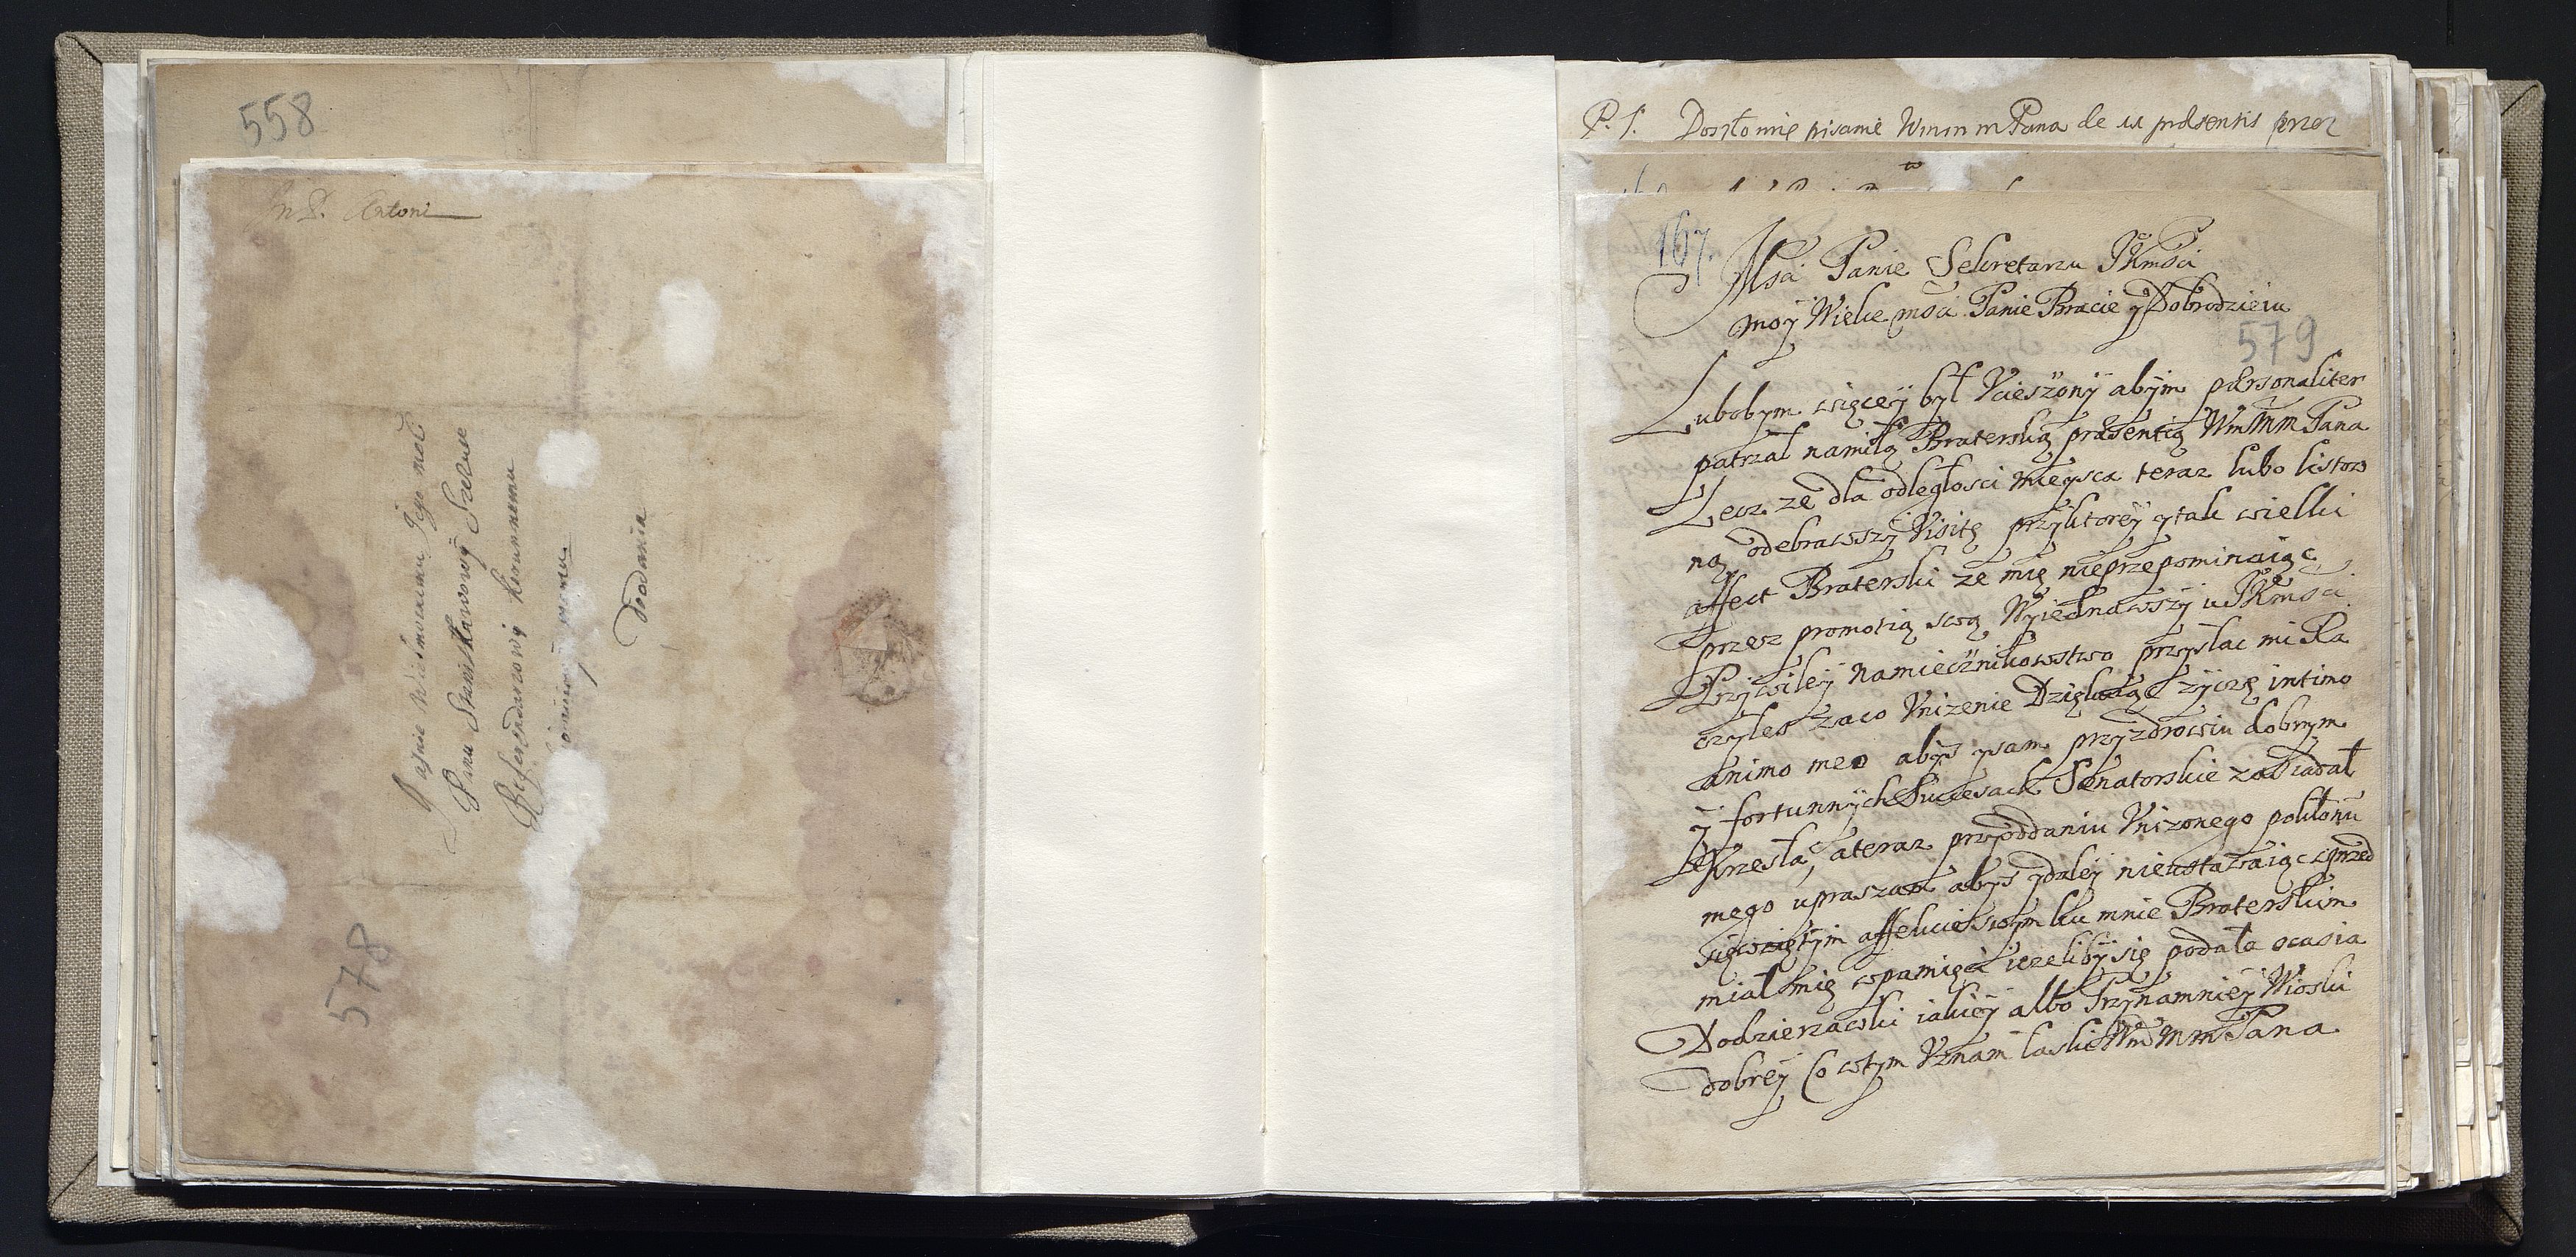 558
Jn P. Antoni
Jasnie Wielmoznemu Jego mośc
Panu Stanisławowj Szczuce
Referendarzowj Koronnemu
Podania
578
P. S. Doszło mię pisanie Wmm m Pana de 11 præsentis przez
167.
Msci Panie Sekretarzu JKmsci
moÿ Wielce msci Panie Bracie ÿ Dobrodzieiu
579
Lubobym więceÿ był Vcieszonÿ abÿm pærsonaliter
patrzał namiłą Braterską præsentią WmMm Pana
Lecz ze dla odległosci mieÿsca teraz lubo listow
ną odebrawszÿ Visitę przÿktoreÿ ÿtak wielki
affect Braterski ze mię nieprzepominaiąc
przesz promotią swą Wÿiednawszÿ u JKmsci
Przÿwileÿ namiecznikowstwo przÿsłac mi Ra
czÿłes zaco Vnizenie Dziękuię zÿczę intimo
animo meo abÿs ÿsam przÿzdrowiu dobrym
ÿ fortunnÿch Successach Senatorskie zasiadał
Krzesła, ateraz przÿoddaniu Vnizonego pokłonu
mego upraszam abÿs ÿdaleÿ nieustawaiąc wprzed
sięwziętÿm affekcie swÿm ku mnie Braterskim
miał mię wpamięci iezelibÿ się podała ocasia
Dodzierzawki iakieÿ albo Przÿnamnieÿ Wioski
dobreÿ Co wtym Vznam łaskę WmMm Pana